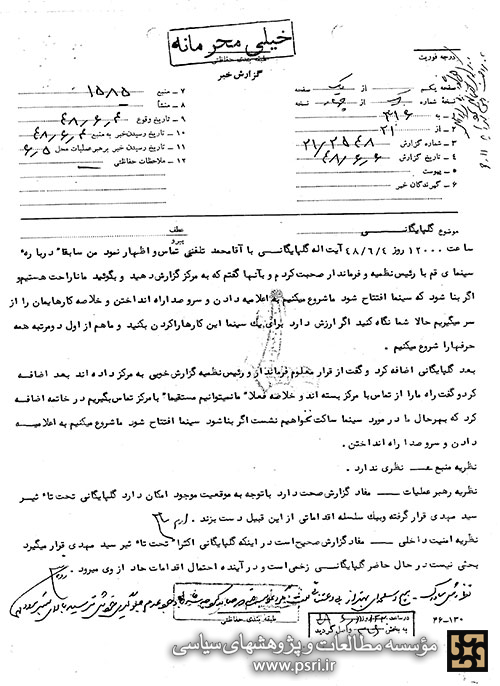 خیلی محرمانه
طبقه بندی حفاظتی
گزارش خبر
درجه فوریت
صفحه یکم از یک صفحه
نسخه شماره یک از چهار نسخه
۱ - به ۳۱۶
۲ - از ۲۱
۳ - شماره گزارش ۲۱/۲۵۴۸
۴ - تاریخ گزارش ۴۸/۶/۶
۵ - پیوست
۶ - گیرندگان خبر
۷ - منبع ۱۵۸۵
۸ - منشأ
۹ - تاریخ وقوع ۴۸/۶/۴
۱۰ - تاریخ رسیدن خبر به منبع ۴۸/۶/۴
۱۱ - تاریخ رسیدن خبر برهبر عملیات محل ۶/۵
۱۲ - ملاحظات حفاظتی
موضوع گلپایگانی
عطف
پیرو
ساعت ۱۲۰۰۰ روز ۴۸/۶/۴ آیت اله گلپایگانی با آقامحمد تلفنی تماس و اظهار نمود من سابقا" درباره"
سینمای قم با رئیس نظمیه و فرماندار صحبت کردم و بآنها گفتم که به مرکز گزارش دهید و بگوئید ما ناراحت هستیم و
اگر بنا شود که سینما افتتاح شود ما شروع میکنیم به اعلامیه دادن و سر و صدا راه انداختن و خلاصه کارهایمان را از
سر میگیریم حالا شما نگاه کنید اگر ارزش دارد برای یك سینما این کارها را کردن بکنید و ما هم از اول دو مرتبه همه
حرفها را شروع میکنیم .
بعد گلپایگانی اضافه کرد و گفت از قرار معلوم فرماندار و رئیس نظمیه گزارش خوبی به مرکز داده اند بعد اضافه
کرد و گفت راه ما را از تماس با مرکز بسته اند و خلاصه فعلا" ما نمیتوانیم مستقیما" با مرکز تماس بگیریم در خاتمه اضافه
کرد که بهرحال ما در مورد سینما ساکت نخواهیم نشست اگر بنا شود سینما افتتاح شود ما شروع میکنیم به اعلامیه
دادن و سر و صدا راه انداختن .
نظریه منبع ــ نظری ندارد .
نظریه رهبر عملیات ــ مفاد گزارش صحت دارد با توجه به موقعیت موجود امکان دارد گلپایگانی تحت تأثیر
سید مهدی قرار گرفته و بیك سلسله اقداماتی از این قبیل دست بزند .
نظریه امنیت داخلی ــ مفاد گزارش صحیح است در اینکه گلپایگانی اکثرا" تحت تأثیر سید مهدی قرار میگیرد
بحثی نیست در حال حاضر گلپایگانی زخمی است و در آینده احتمال اقدامات حاد از وی میرود .
نظریه رئیس ساواک
خیلی محرمانه
طبقه بندی حفاظتی
۳۶-۱۳۰
مؤسسه مطالعات و پژوهشهای سیاسی
www.psri.ir